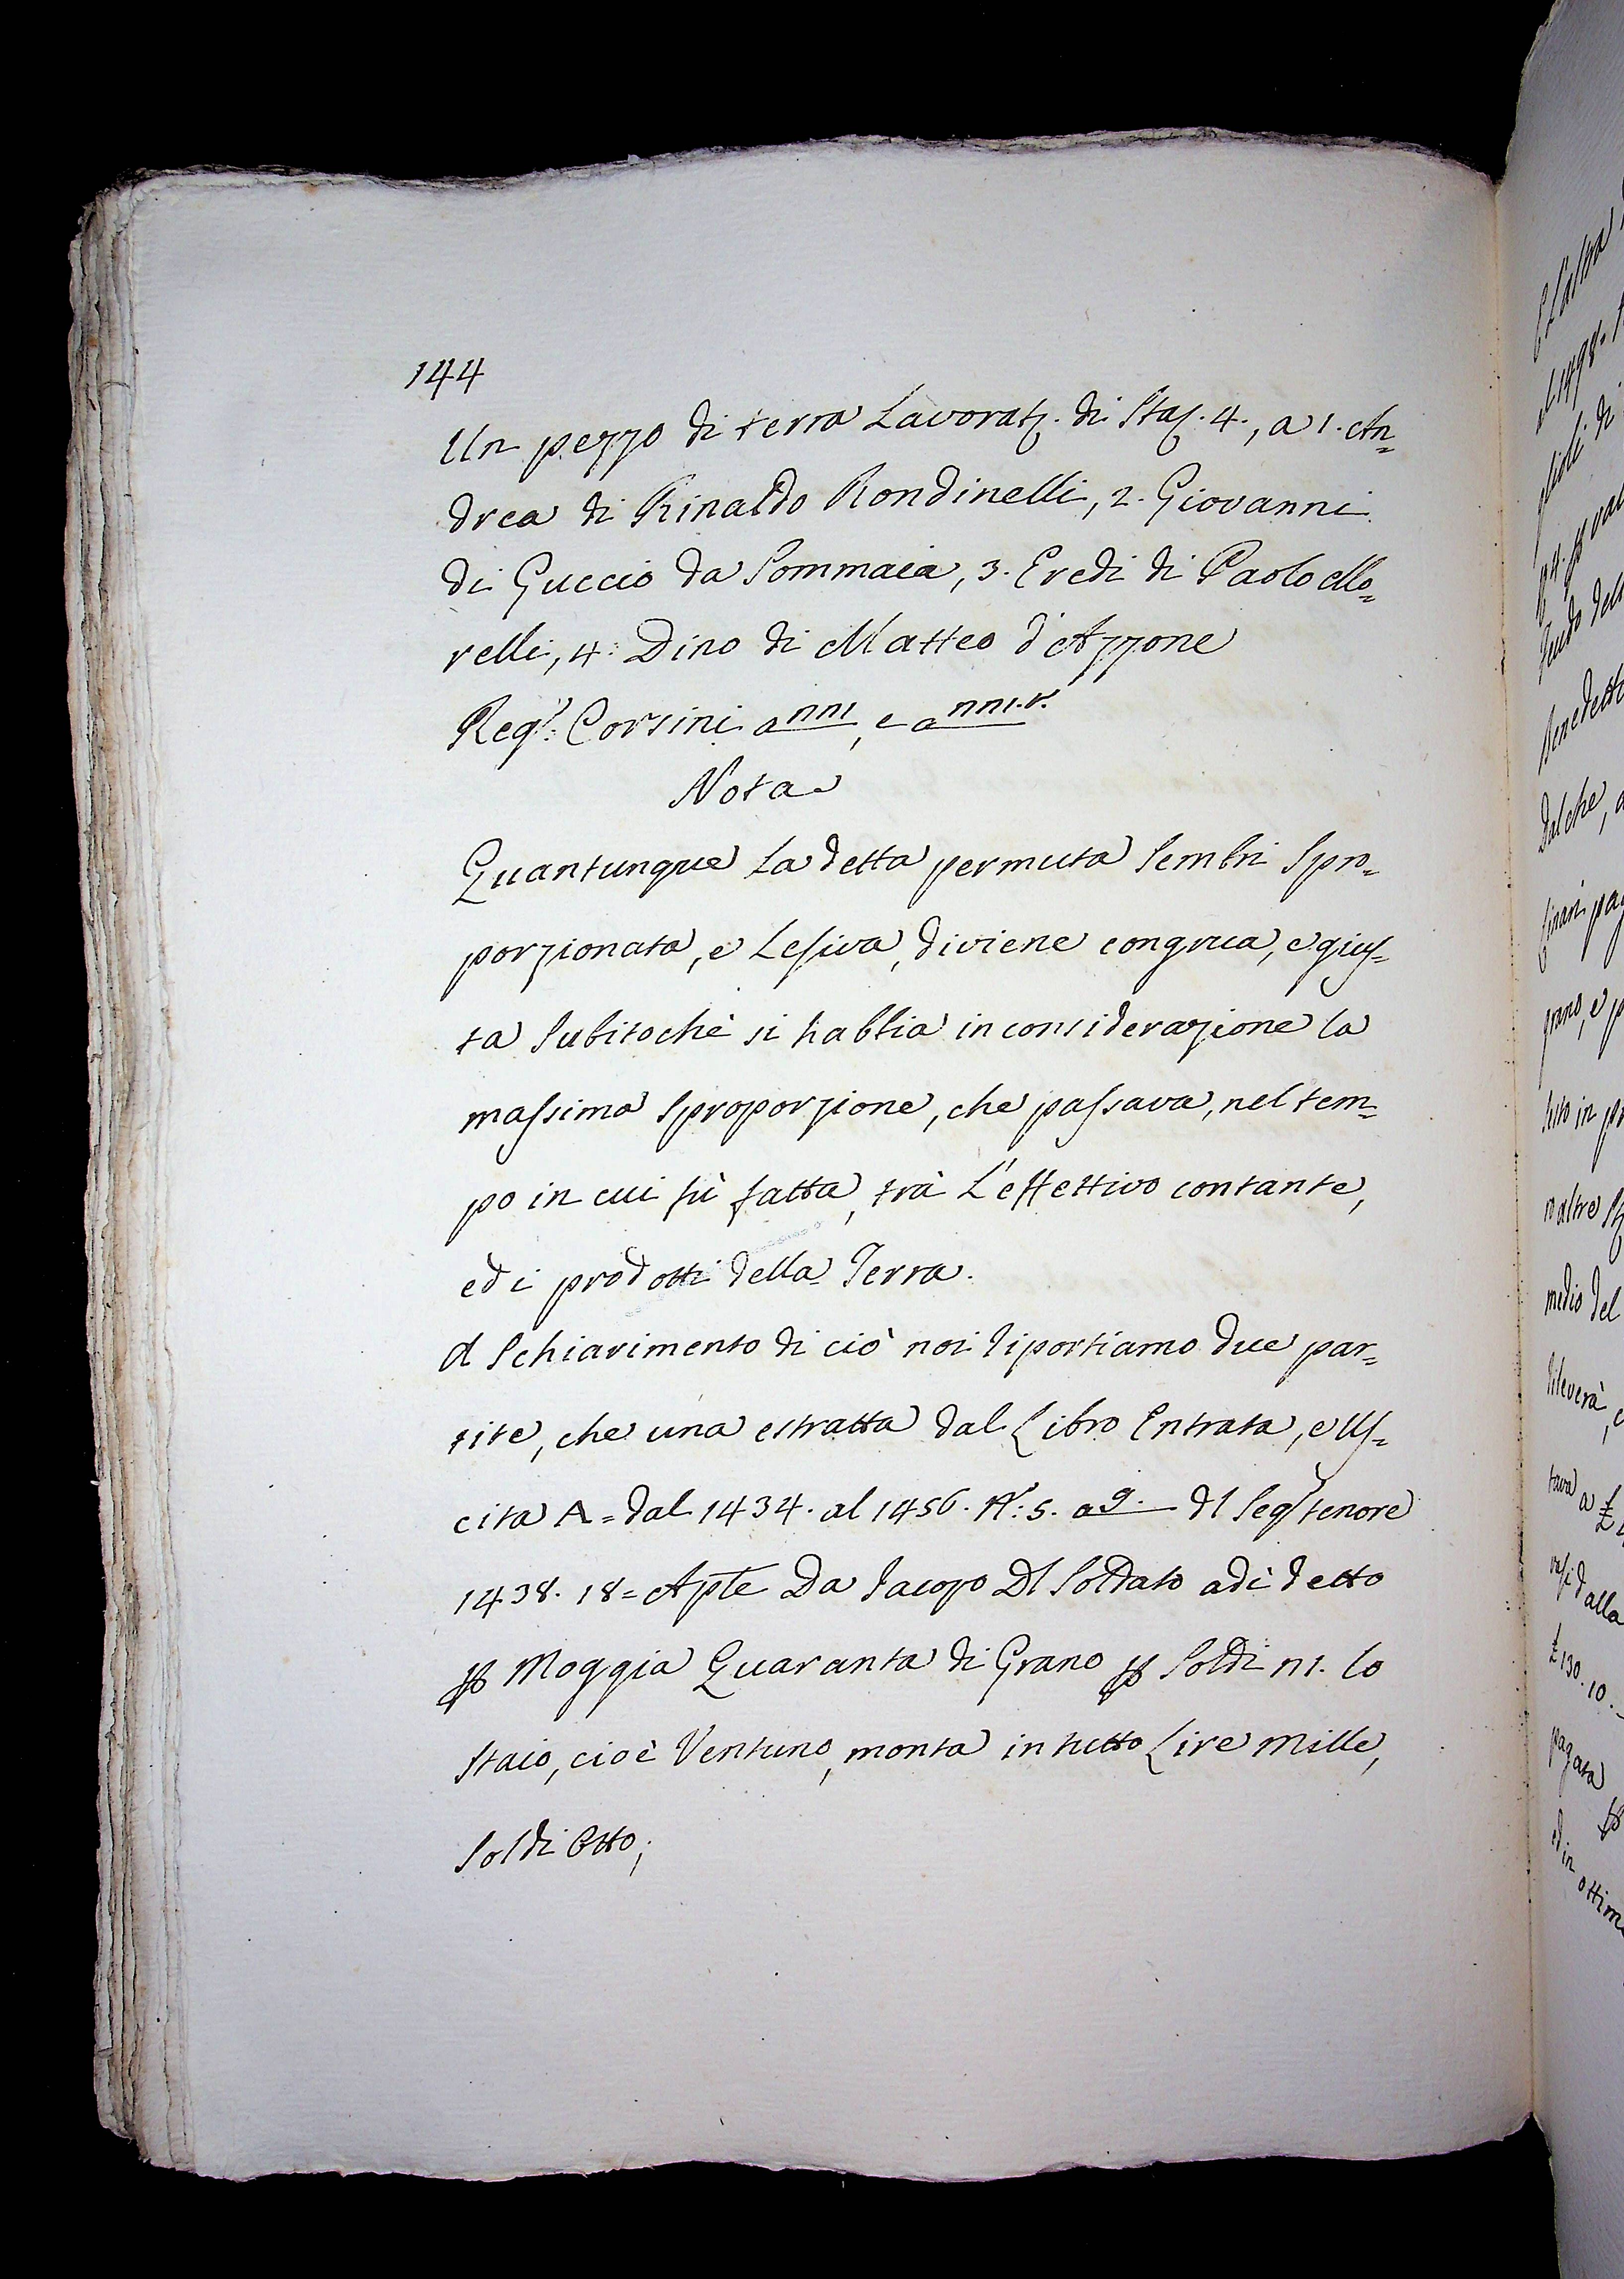 144
Un pezzo di terra Lavorat. di Sta. 4., a 1. An=
drea di Rinaldo Rondinelli, 2. Giovanni
di Guccio da Sommaia, 3. Eredi di Paolo Mo=
relli, 4. Dino di Matteo d'Azzone
Reg.º Corsini a nn1, e a nn1.v.
Nota
Quantunque La detta permuta Sembri Spro=
porzionata, e Lesiva, diviene congrua, e gius=
ta Subitochè si habbia in considerazione la
massima Sproporzione, che passava, nel tem=
po in cui fù fatta, trà L'effettivo contante,
ed i prodotti della Terra.
A Schiarimento di ciò noi riportiamo due par=
tite, che una estratta dal Libro Entrata, e Us=
cita A = dal 1434. al 1456. N.º 5. a 9. dl Seg.º tenore
1438. 18 = Aple Da Iacopo Dl Soldato adì detto
p Moggia Quaranta di Grano p Soldi n1. lo
Staio, cioè Ventuno, monta in tutto Lire Mille,
Soldi Otto;
E l'altra
fiori di
Benedetto
Dal che, a
grano, e p
n altre
medio del
rileverà,
tava a £
dalla
£ 130. 10.
pagata
ed in ottim